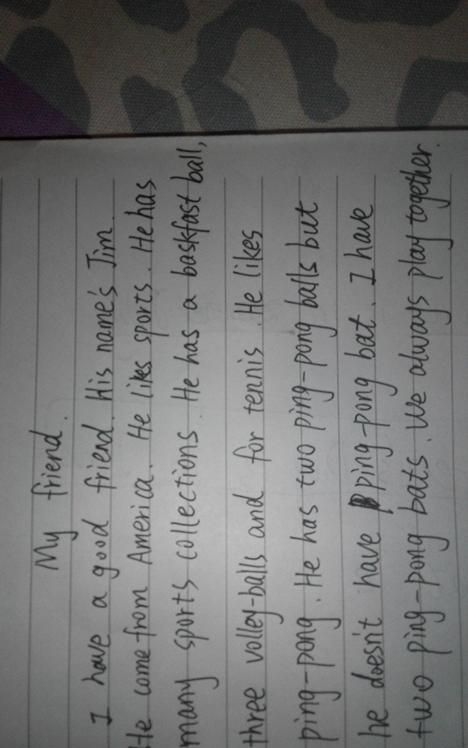 My friend.
I have a good friend. His name's Jim.
He come from America. He likes sports. He has
many sports collections. He has a baskfast ball,
three volley-balls and for tennis. He likes
ping-pong. He has two ping-pong balls but
he doesn't have ping-pong bat. I have
two ping-pong bats. We always play together.